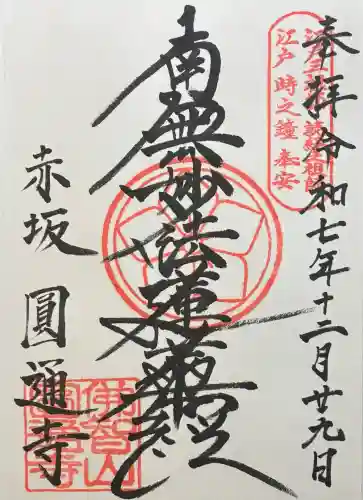 奉拝 令和七年十二月廿九日
江戸 時之鐘 奉安
南無妙法蓮華経
赤坂 圓通寺